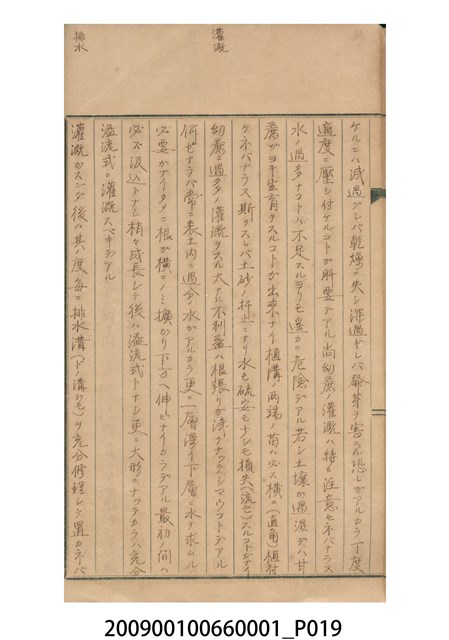 灌漑
排水
ケルニハ淺過グレバ乾燥ニ失シ深過ギレバ發芽ヲ害スル恐レガアルカラ丁度
適度ニ壓シ付ケルコトガ肝要デアル尚幼蔗ノ灌漑ハ特ニ注意セネバナラヌ
水ノ過多ナコトハ不足スルヨリモ遙カニ危險デアル若シ土壤ガ過濕デハ甘
蔗ガヨキ生育ヲスルコトガ出來ナイ植溝ノ兩端ノ苗ハ必ズ橫ニ(直角)植付
ケネバナラヌ斯クスレバ土砂ノ杆止ニナリ水モ硫安モ少シモ損失(流亡)スルコトガナイ
幼蔗ニ過多ノ灌漑ヲスル大ナル不利益ハ根張リガ淺クナッテシマウコトデアル
何ゼナラバ常ニ表土内ニ過分ノ水ガアルカラ更ニ一層深イ下層ニ水ヲ求ムル
必要ガナイタメニ根ガ橫ニノミ擴ガリ下方ヘ伸ビナイカラデアル最初ノ間ハ
必ズ汲込トナシ稍々成長シテ後ハ溢流式トナシ更ニ大形ニナッテカラハ充分
溢流式ニ灌漑スベキデアル
灌漑ガスンダ後ハ其ノ度每ニ排水溝(下ノ溝ヲモ)ヲ充分修理シテ置カネバ
200900100660001_P019